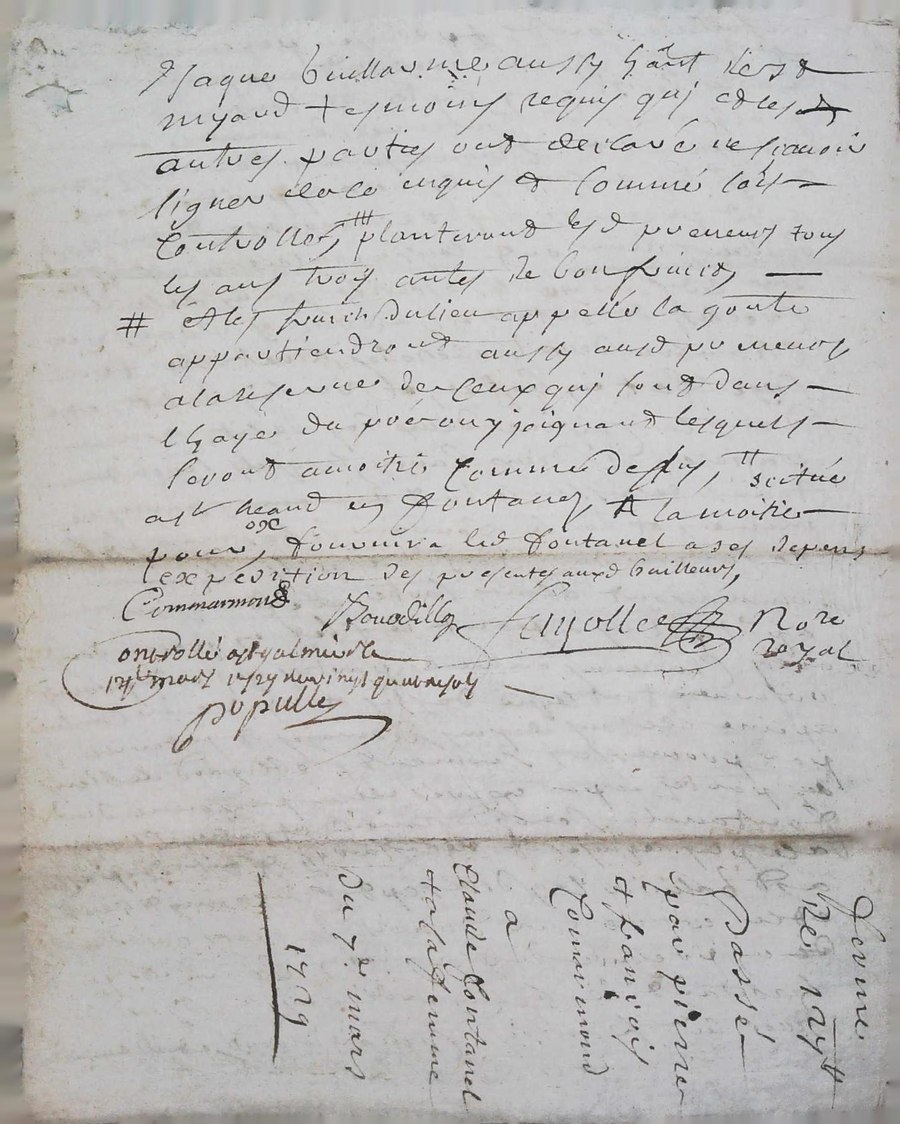 Jaque Guillarme aussy h̃ant des d
myard tesmoins requis qui et les
autres parties ont declaré ne scavoir
signer de ce enquis & comme sera
controllé, ### planteront lesd preneurs tous
les ans trois antes de bon fruict,
# Et les fruicts du lieu appellé la goutte
appartiendront aussy ausd preneurs
a la reserve de ceux qui sont dans
lhaye du joignant lesquels
seront a moitié comme dessus, # scitué
en fontanes la moitié
pour, fournira led fontanel a ses depens
lexpedition des presentes auxd bailleurs,
Commarmond
Bourdillon Fayolle Nore
Royal
Controllé a St galmier le
mars 1729 neuf sols
Populle
Ferme
De 127#
Passé
par pierre
& francois
Comarmond
a
Claude fontanel
& a sa femme
du 7e mars
1729